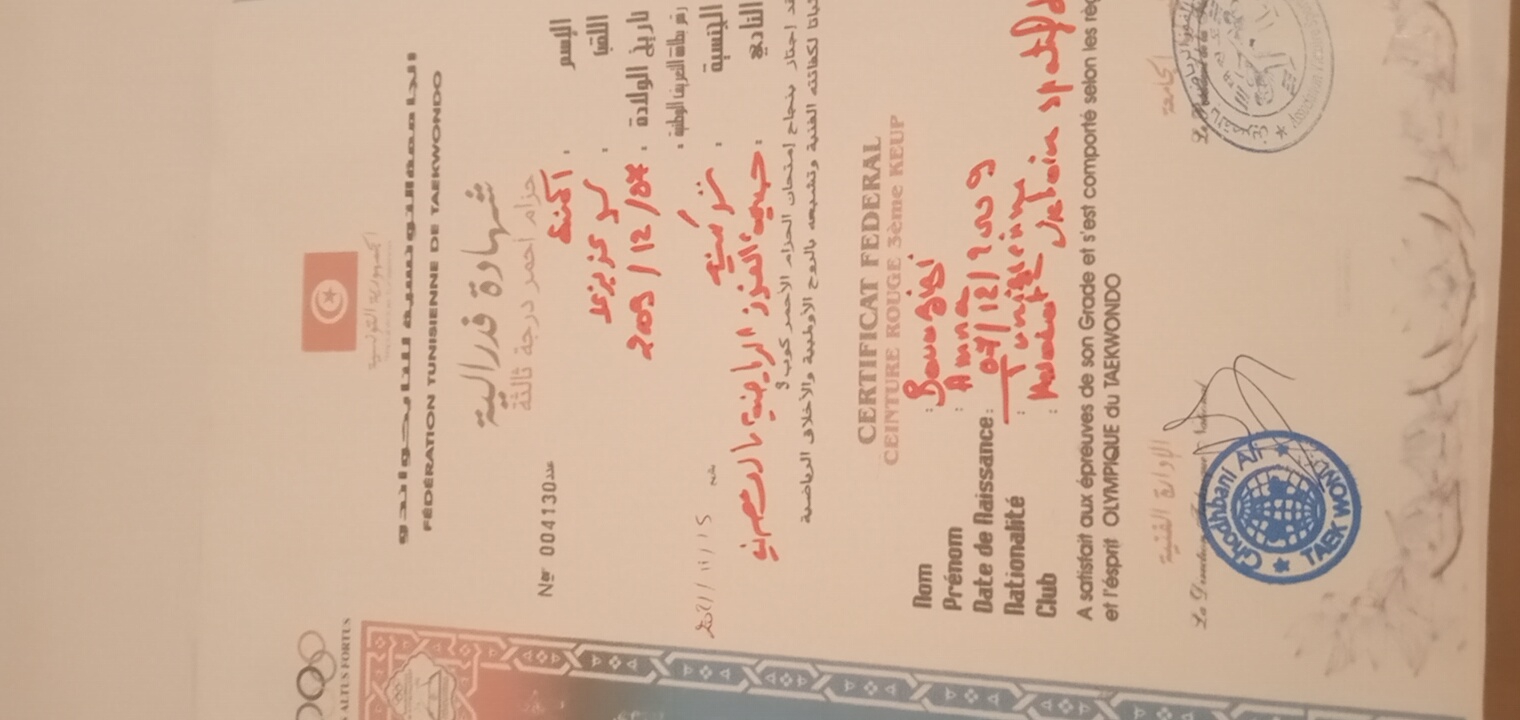 ALTUS FORTUS
الجمهورية التونسية
الجامعة التونسية للتايكواندو
FÉDÉRATION TUNISIENNE DE TAEKWONDO
شهادة فدرالية
حزام احمر درجة ثالثة
Nor 004130 عدد
الإسم : آمنة
اللقب : بوعزيزي
تاريخ الولادة : 2009/12/07
رقم بطاقة التعريف الوطنية :
الجنسية : تونسية
2021/11/15
النادي : جمعية الرياضية
قد اجتاز بنجاح إمتحان الحزام الأحمر كوب 3
لكفائته الفنية وتشبعه بالروح الأولمبية والأخلاق الرياضية
CERTIFICAT FEDERAL
CEINTURE ROUGE 3ème KEUP
Nom : Bouazizi
Prénom : Amna
Date de Naissance : 07/12/2009
Nationalité : Tunisienne
Club :
A satisfait aux épreuves de son Grade et s'est comporté selon les
et l'ésprit OLYMPIQUE du TAEKWONDO
الإدارة الفنية
الجامعة
Ghodhbani Ali
TAEKWONDO